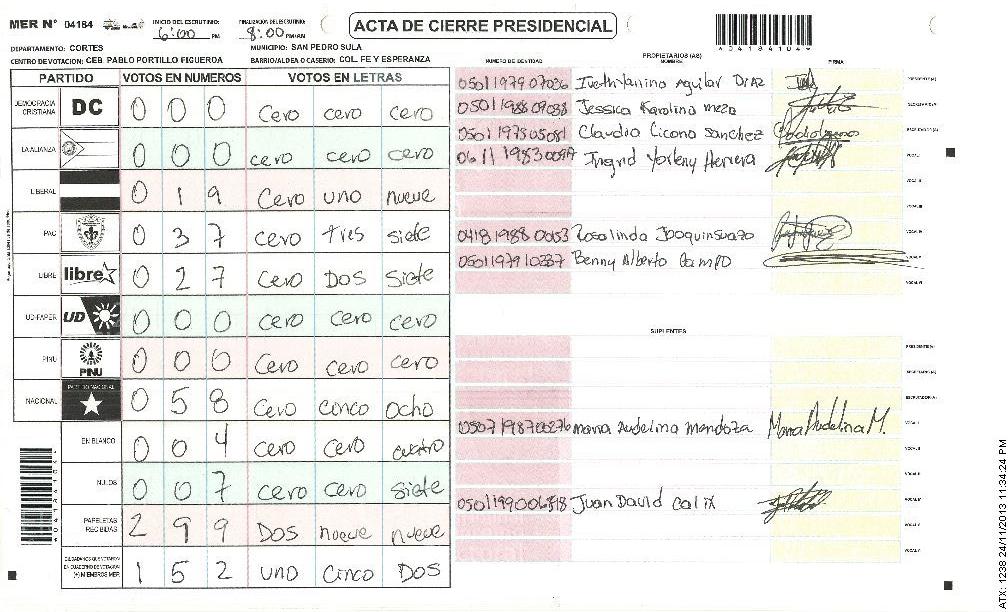 MER N° 04184
INICIO DEL ESCRUTINIO: 6:00 PM
FINALIZACION DEL ESCRUTINIO: 8:00 PM/AM
ACTA DE CIERRE PRESIDENCIAL
04184104
DEPARTAMENTO: CORTES
MUNICIPIO: SAN PEDRO SULA
CENTRO DE VOTACION: CEB PABLO PORTILLO FIGUEROA
BARRIO/ALDEA O CASERIO: COL. FE Y ESPERANZA
PARTIDO VOTOS EN NUMEROS VOTOS EN LETRAS
DEMOCRACIA CRISTIANA DC 0 0 0 Cero cero cero
LA ALIANZA 0 0 0 cero cero cero
LIBERAL 0 1 9 Cero uno nueve
PAC 0 3 7 cero tres siete
LIBRE libre 0 2 7 Cero DOS Siete
UD-FAPER UD 0 0 0 cero cero cero
PINU PINU 0 0 0 Cero cero cero
NACIONAL PARTIDO NACIONAL 0 5 8 Cero cinco ocho
EN BLANCO 0 0 4 Cero Cero cuatro
NULOS 0 0 7 cero cero siete
PAPELETAS RECIBIDAS 2 9 9 DOS nueve nueve
CIUDADANOS QUE VOTARON EN CUADERNO DE VOTACION (+) MIEMBROS MER 1 5 2 uno cinco DOS
PROPIETARIOS (AS)
NUMERO DE IDENTIDAD NOMBRE FIRMA
Aguilar DIAZ PRESIDENTE(A)
Jessica Karolina meza SECRETARIO(A)
Claudia Licona Sanchez ESCRUTADOR(A)
Ingrid Yorleny Herrera VOCAL I
VOCAL II
VOCAL III
0418 1988 00153 Rosalinda VOCAL IV
Benny Alberto Campo VOCAL V
VOCAL VI
SUPLENTES
PRESIDENTE(A)
SECRETARIO(A)
ESCRUTADOR(A)
Maria Audelina Mendoza Maria Audelina M. VOCAL I
VOCAL II
VOCAL III
Juan David Calix VOCAL IV
VOCAL V
VOCAL VI
ATX: 1238 24/11/2013 11:34:24 PM